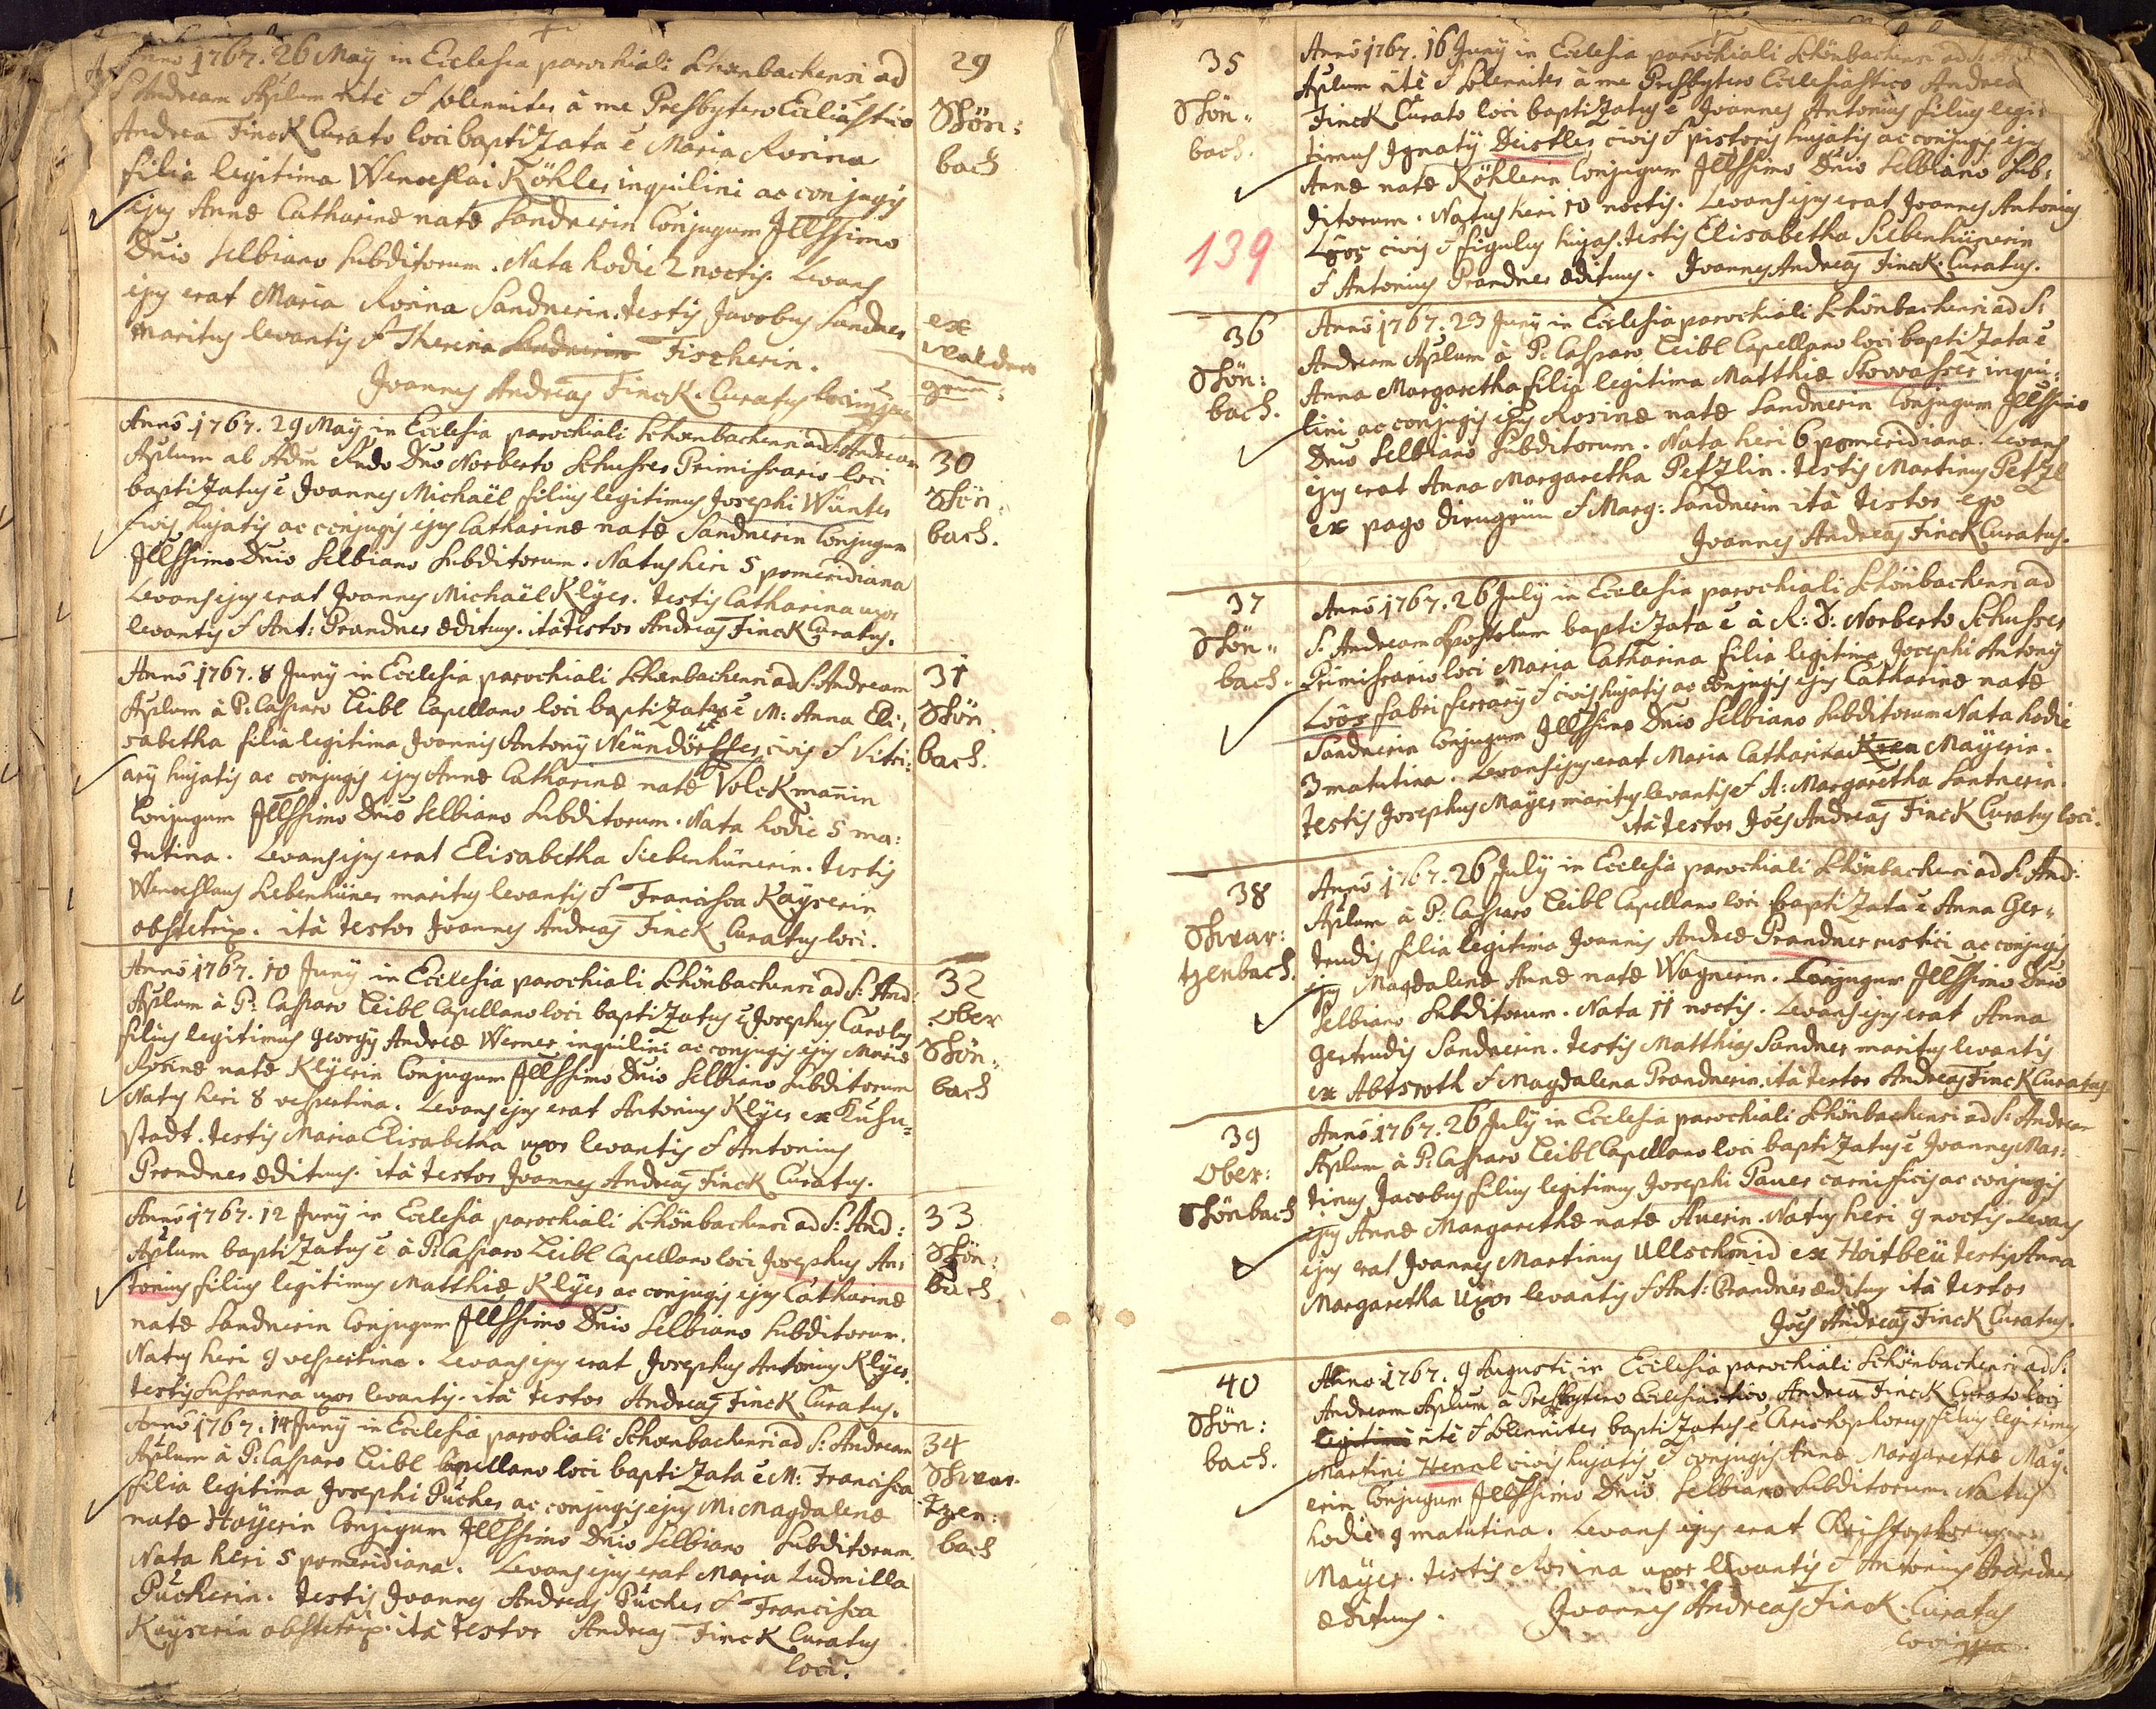 Anno 1767. 26 Maÿ in Ecclesia parochiali Schönbachensi ad
S. Andream Aplum ritè & solenniter à me Presbytero Eccliastico
Andrea Finck Curato loci baptizata ē Maria Rosina
filia legitima Wenceslai Köhler inquilini ac conjugis
ejus Annæ Catharinæ natæ Sandnerin Conjugum Jllssimo
Dnio Selbiano Subditorum. Nata hodie 2 noctis. Levans
ejus erat Maria Rosina Sandnerin. testis Jacobus Sandner
maritus levantis & Therina Sandnerin Fischerin.
Joannes Andreas Finck. Curatus loci
29
Schön:
bach
ex
grün:
Anno 1767. 29 Maÿ in Ecclesia parochiali Schönbachensi ad S. Andream
Aplum ab Adm Rndo Dno Norberto Schusser Primissario loci
baptizatus ē Joannes Michaël filius legitimus Josephi Wünter
civis hujatis ac conjugis ejus Catharinæ natæ Sandnerin Conjugum
Jllssimo Dnio Selbiano Subditorum. Natus heri 5 pomeridiana
Levans ejus erat Joannes Michaël Klÿer. testis Catharina uxor
levantis & Ant: Prandner ædituus. ità testor Andreas Finck Curatus.
30
Schön:
bach.
Anno 1767. 8 Junÿ in Ecclesia parochiali Schönbachensi ad S. Andream
Aplum à P: Casparo Leibl Capellano loci baptizata ē M: Anna Eli:
sabetha filia legitima Joannis Antonÿ Neündörffer civis & Vitri:
arÿ hujatis ac conjugis ejus Annæ Catharinæ natæ Volckmañin
Conjugum Jllssimo Dnio Selbiano Subditorum. Nata hodie 5 ma:
tutina. Levans ejus erat Elisabetha Siebenhünerin. testis
Wenceslaus Siebenhüner maritus levantis & Francisca Kaÿserin
obstetrix. ità testor Joannes Andreas Finck Curatus loci.
31
Schön
bach.
Anno 1767. 10 Junÿ in Ecclesia parochiali Schönbachensi ad S: And:
Aplum à P: Casparo Leibl Capellano loci baptizatus ē Josephus Carolus
filius legitimus Georgÿ Andreæ Werner inquilini ac conjugis ejus Mariæ
Rosinæ natæ Klÿerin Conjugum Jllssimo Dnio Selbiano Subditorum
Natus heri 8 vespertina. Levans ejus erat Antonius Klÿer ex
stadt. testis Maria Elisabetha uxor levantis & Antonius
Prandner ædituus. ità testor Joannes Andreas Finck Curatus.
32
Ober
Schön:
bach
Anno 1767. 12 Junÿ in Ecclesia parochiali Schönbachensi ad S: And:
Aplum baptizatus ē à P: Casparo Leibl Capellano loci Josephus An:
tonius filius legitimus Matthiæ Klÿer ac conjugis ejus Catharinæ
natæ Sandnerin Conjugum Jllssimo Dnio Selbiano Subditorum.
Natus heri 9 vespertina. Levans ejus erat Josephus Antonius Klÿer.
testis Susanna uxor levantis. ità testor Andreas Finck Curatus.
33
Schön:
bach.
Anno 1767. 14 Junÿ in Ecclesia parochiali Schönbachensi ad S: Andream
Aplum à P: Casparo Leibl Capellano loci baptizata ē M: Francisca
filia legitima Josephi Pücher ac conjugis ejus M: Magdalenæ
natæ Hoÿerin Conjugum Jllssimo Dnio Selbiano Subditorum.
Nata heri 5 pomeridiana. Levans ejus erat Maria Ludmilla
Pücherin. Testis Joannes Andreas Pücher & Francisca
Kaÿserin obstetrix. ità testor Andreas Finck Curatus
loci.
34
Schwar
tzen:
bach
35
Schön:
bach.
139
Anno 1767. 16 Junÿ in Ecclesia parochiali Schönbachensi ad S.
Aplum ritè & solenniter à me Presbytero Ecclesiastico Andrea
Finck Curato loci baptizatus ē Joannes Antonius filius legi:
timus Ignatÿ Deistler civis & pistoris hujatis ac conjugis ejus
Annæ natæ Köhlerin Conjugum Jllssimo Dnio Selbiano Sub:
ditorum. Natus heri 10 noctis. Levans ejus erat Joannes Antonius
Löös civis & figulus hujas. testis Elisabetha Siebenhünerin
& Antonius Prandner ædituus. Joannes Andreas Finck. Curatus.
36
Schön:
bach.
Anno 1767. 23 Junÿ in Ecclesia parochiali Schönbachensi ad S:
Andream Aplum à P: Casparo Leibl Capellano loci baptizata ē
Anna Margaretha filia legitima Matthiæ Stowasser inqui:
lini ac conjugis ejus Rosinæ natæ Sandnerin Conjugum Jllssimo
Dnio Selbiano Subditorum. Nata heri 6 pomeridiana. Levans
ejus erat Anna Margaretha Petzlin. testis Martinus Petzl
ex pago Dirngrün & Marg: Sandnerin ità testor ego
Joannes Andreas Finck Curatus.
37
Schön:
bach.
Anno 1767. 26 Julÿ in Ecclesia parochiali Schönbachensi ad
S. Andream Apostolum baptizata ē à R: D: Norberto Schusser
Primissario loci Maria Catharina filia legitima Josephi Antonÿ
Löös fabri ferrarÿ & civis hujatis ac conjugis ejus Catharinæ natæ
Sandnerin Conjugum Jllssimo Dnio Selbiano Subditorum Nata hodie
3 matutina. Levans ejus erat Maria Catharina Maÿerin.
testis Josephus Maÿer maritus levantis & A: Margaretha Santnerin.
ità testor Joës Andreas Finck Curatus loci.
38
Schwar:
tzenbach.
Anno 1767. 26 Julÿ in Ecclesia parochiali Schönbachensi ad S: And:
Aplum à P: Casparo Leibl Capellano loci baptizata ē Anna Ger:
trudis filia legitima Joannis Andreæ Prandner rustici ac conjugis
ejus Magdalenæ Annæ natæ Wagnerin. Conjugum Jllssimo Dnio
Selbiano Subditorum. Nata 11 noctis. Levans ejus erat Anna
Gertrudis Sandnerin. testis Matthias Sandner maritus levantis
ex Abtsroth & Magdalena Prandnerin. ità testor Andreas Finck Curatus
39
Ober:
Schönbach
Anno 1767. 26 Julÿ in Ecclesia parochiali Schönbachensi ad S: Andream
Aplum à P: Casparo Leibl Capellano loci baptizatus ē Joannes Mar:
tinus Jacobus filius legitimus Josephi Pauer carnificis ac conjugis
ejus Annæ Margarethæ natæ Auerin. Natus heri 9 noctis Levans
ejus erat Joannes Martinus Ullschmid ex Hoitbeü testis Anna
Margaretha uxor levantis & Ant: Prandner ædituus ità testor
Joës Andreas Finck Curatus.
40
Schön:
bach.
Anno 1767. 9 Augusti in Ecclesia parochiali Schönbachensi ad S:
Andream Aplum à Presbytero Ecclesiastico Andrea Finck Curato loci
legitimi ritè & solenniter baptizatus ē Christophorus filius legitimus
Martini Hennl civis hujatis & conjugis Annæ Margarethæ Maÿ:
erin Conjugum Jllssimo Dnio Selbiano Subditorum. Natus
hodie 9 matutina. Levans ejus erat Christophorus
Maÿer. testis Rosina uxor levantis & Antonius Prandner
ædituus. Joannes Andreas Finck. Curatus
loci